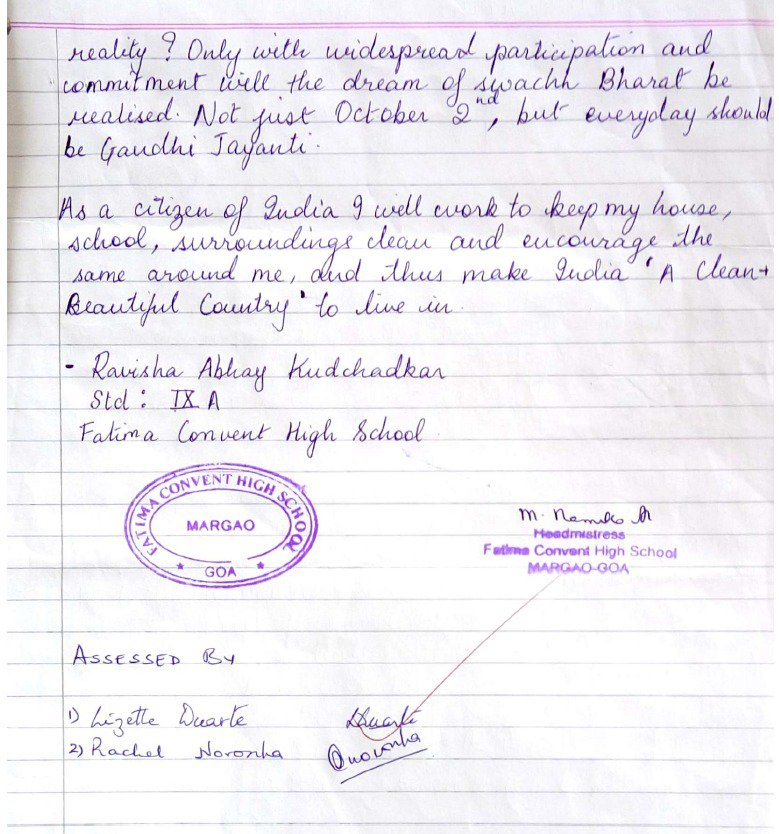 reality ? Only with widespread participation and
commitment will the dream of swachh Bharat be
realised. Not just October 2nd, but everyday should
be Gandhi Jayanti.
As a citizen of India I will work to keep my house,
school, surroundings clean and encourage the
same around me, and thus make India 'A Clean+
Beautiful Country' to live in.
- Ravisha Abhay Kudchadkar
Std : IX A
Fatima Convent High School
FATIMA CONVENT HIGH SCHOOL
MARGAO
* GOA *
M.
Headmistress
Fatima Convent High School
MARGAO-GOA
ASSESSED BY
1) Lizette Duarte Duarte
2) Rachel Noronha Noronha